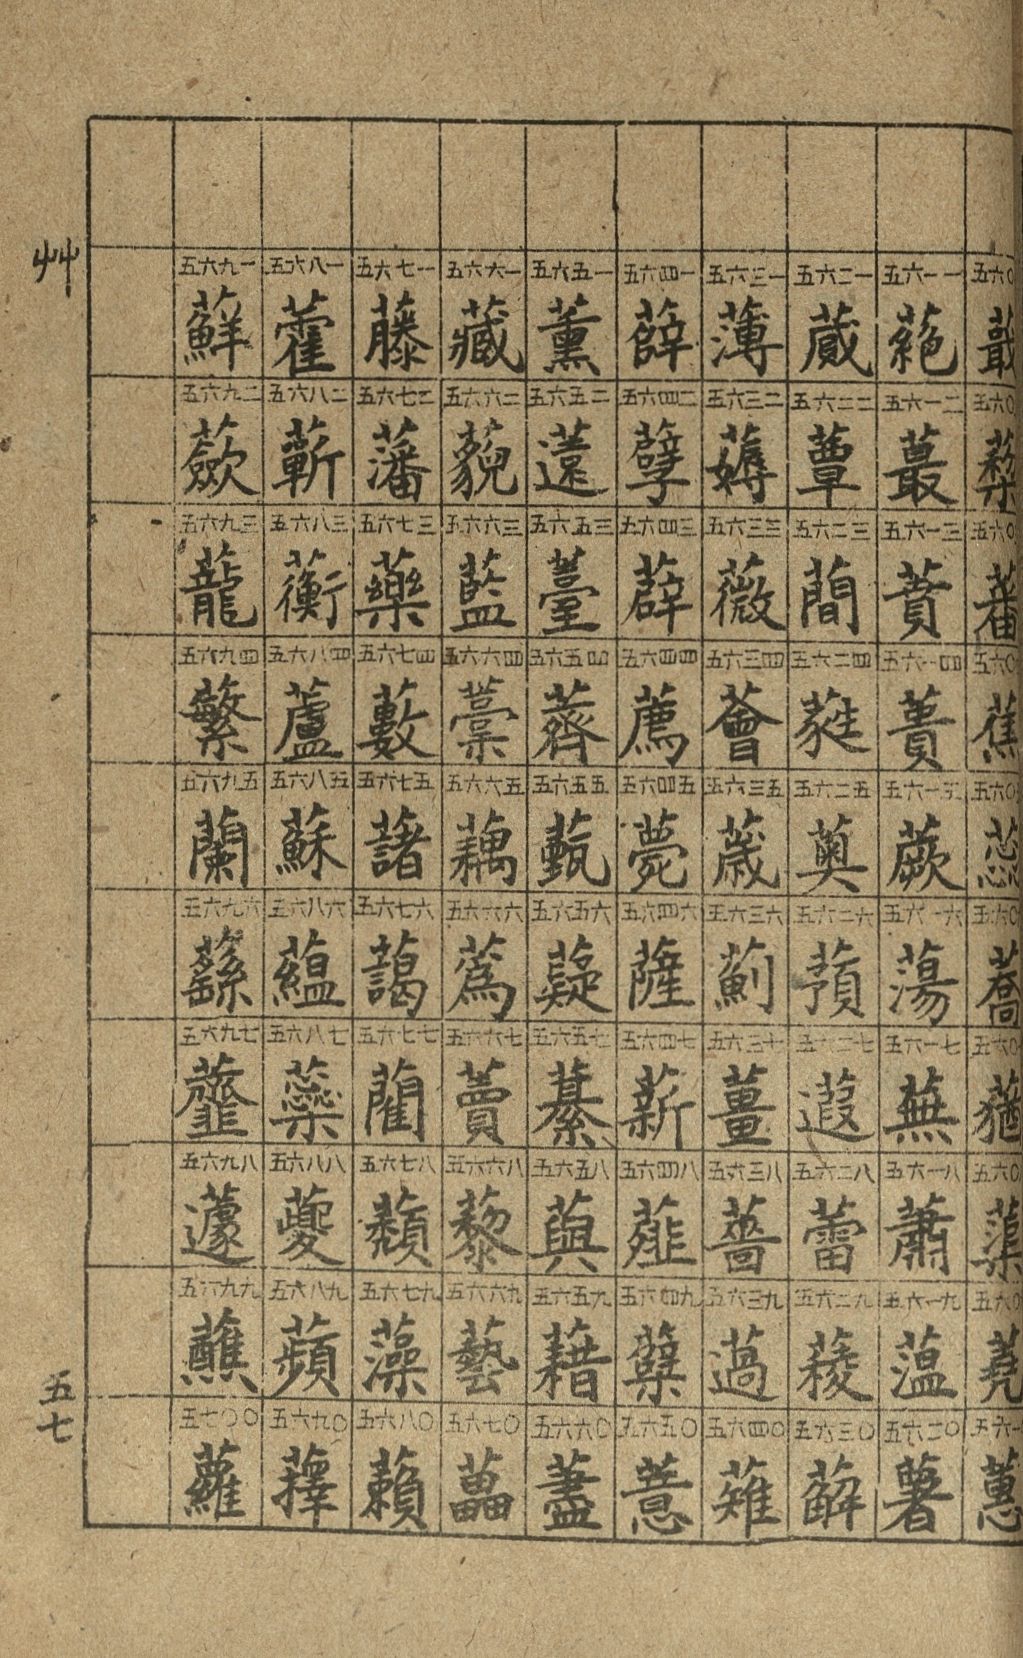 艸
五六〇
蕺
五六〇
五六〇
蕃
五六〇
蕉
五六〇
蕊
五六〇
蕎
五六〇
蕕
五六〇
蕖
五六〇
蕘
五六一
蕙
五六一一
蕝
五六一二
蕞
五六一三
蕡
五六一四
蕢
五六一五
蕨
五六一六
蕩
五六一七
蕪
五六一八
蕭
五六一九
薀
五六二〇
薯
五六二一
蕆
五六二二
蕈
五六二三
蕑
五六二四
蕤
五六二五
薁
五六二六
蕷
五六二七
蕸
五六二八
蕾
五六二九
薐
五六三〇
薢
五六三一
薄
五六三二
薅
五六三三
薇
五六三四
薈
五六三五
薉
五六三六
薊
五六三七
薑
五六三八
薔
五六三九
薖
五六四〇
薙
五六四一
薛
五六四二
孽
五六四三
薜
五六四四
薦
五六四五
薨
五六四六
薩
五六四七
薪
五六四八
薤
五六四九
糵
五六五〇
薏
五六五一
薰
五六五二
薳
五六五三
薹
五六五四
薺
五六五五
薽
五六五六
薿
五六五七
藄
五六五八
藇
五六五九
藉
五六六〇
藎
五六六一
藏
五六六二
藐
五六六三
藍
五六六四
藁
五六六五
藕
五六六六
蔿
五六六七
藚
五六六八
藜
五六六九
藝
五六七〇
藟
五六七一
藤
五六七二
藩
五六七三
藥
五六七四
藪
五六七五
藷
五六七六
藹
五六七七
藺
五六七八
蘈
五六七九
藻
五六八〇
藾
五六八一
藿
五六八二
蘄
五六八三
蘅
五六八四
蘆
五六八五
蘇
五六八六
蘊
五六八七
蘂
五六八八
蘷
五六八九
蘋
五六九〇
蘀
五六九一
蘚
五六九二
蘞
五六九三
蘢
五六九四
蘩
五六九五
蘭
五六九六
蘨
五六九七
虀
五六九八
蘧
五六九九
蘸
五七〇〇
蘿
五七